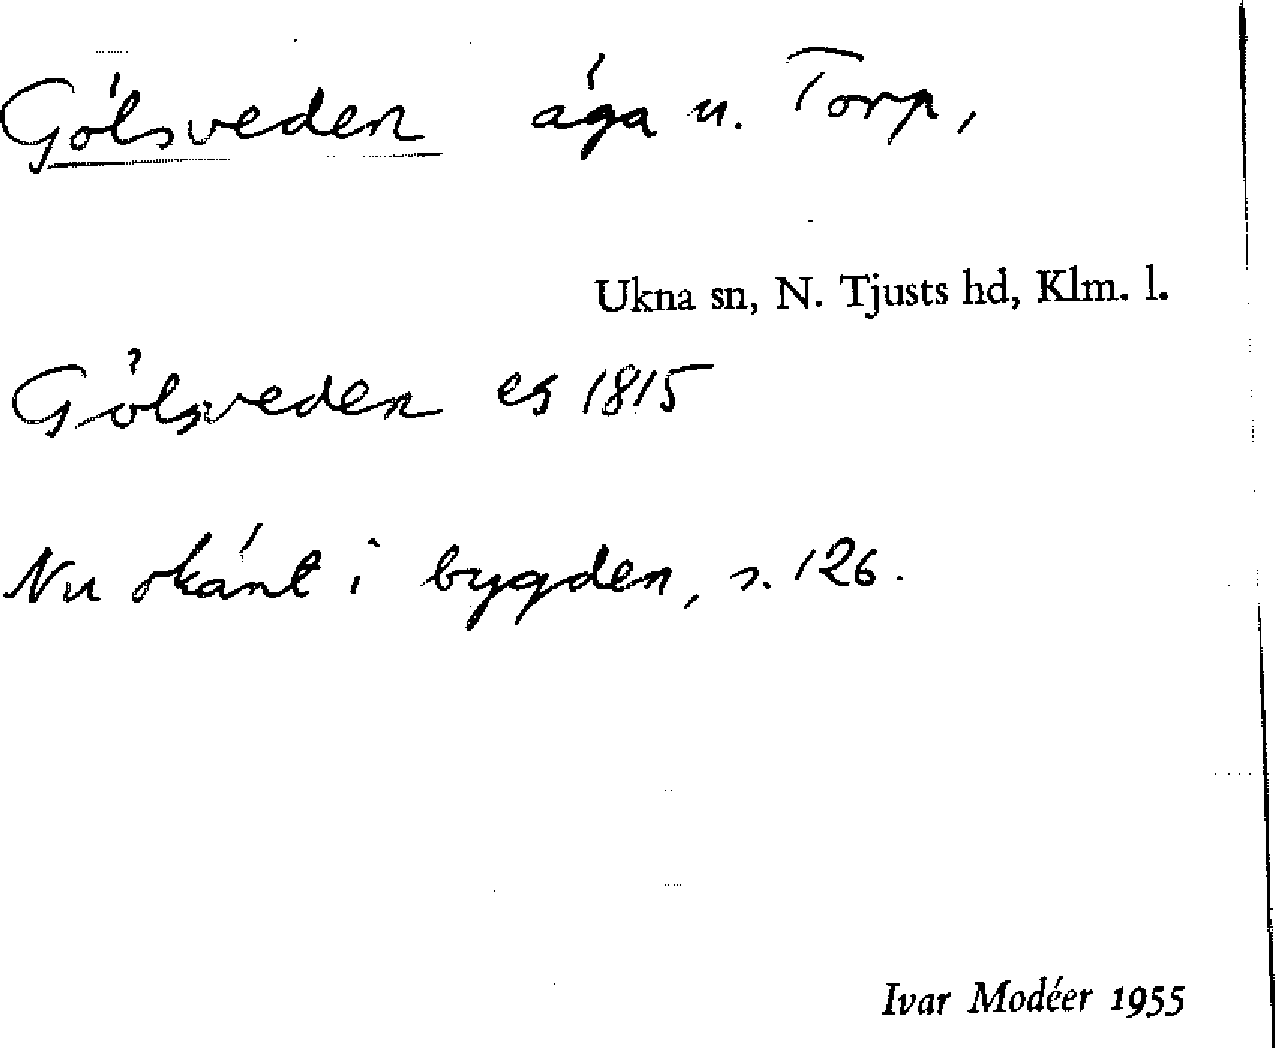 Gölsveden äga u. Torp,
Ukna sn, N. Tjusts hd, Klm. l.
Gölsveden es 1815
Nu okänt i bygden, s. 126.
Ivar Modéer 1955